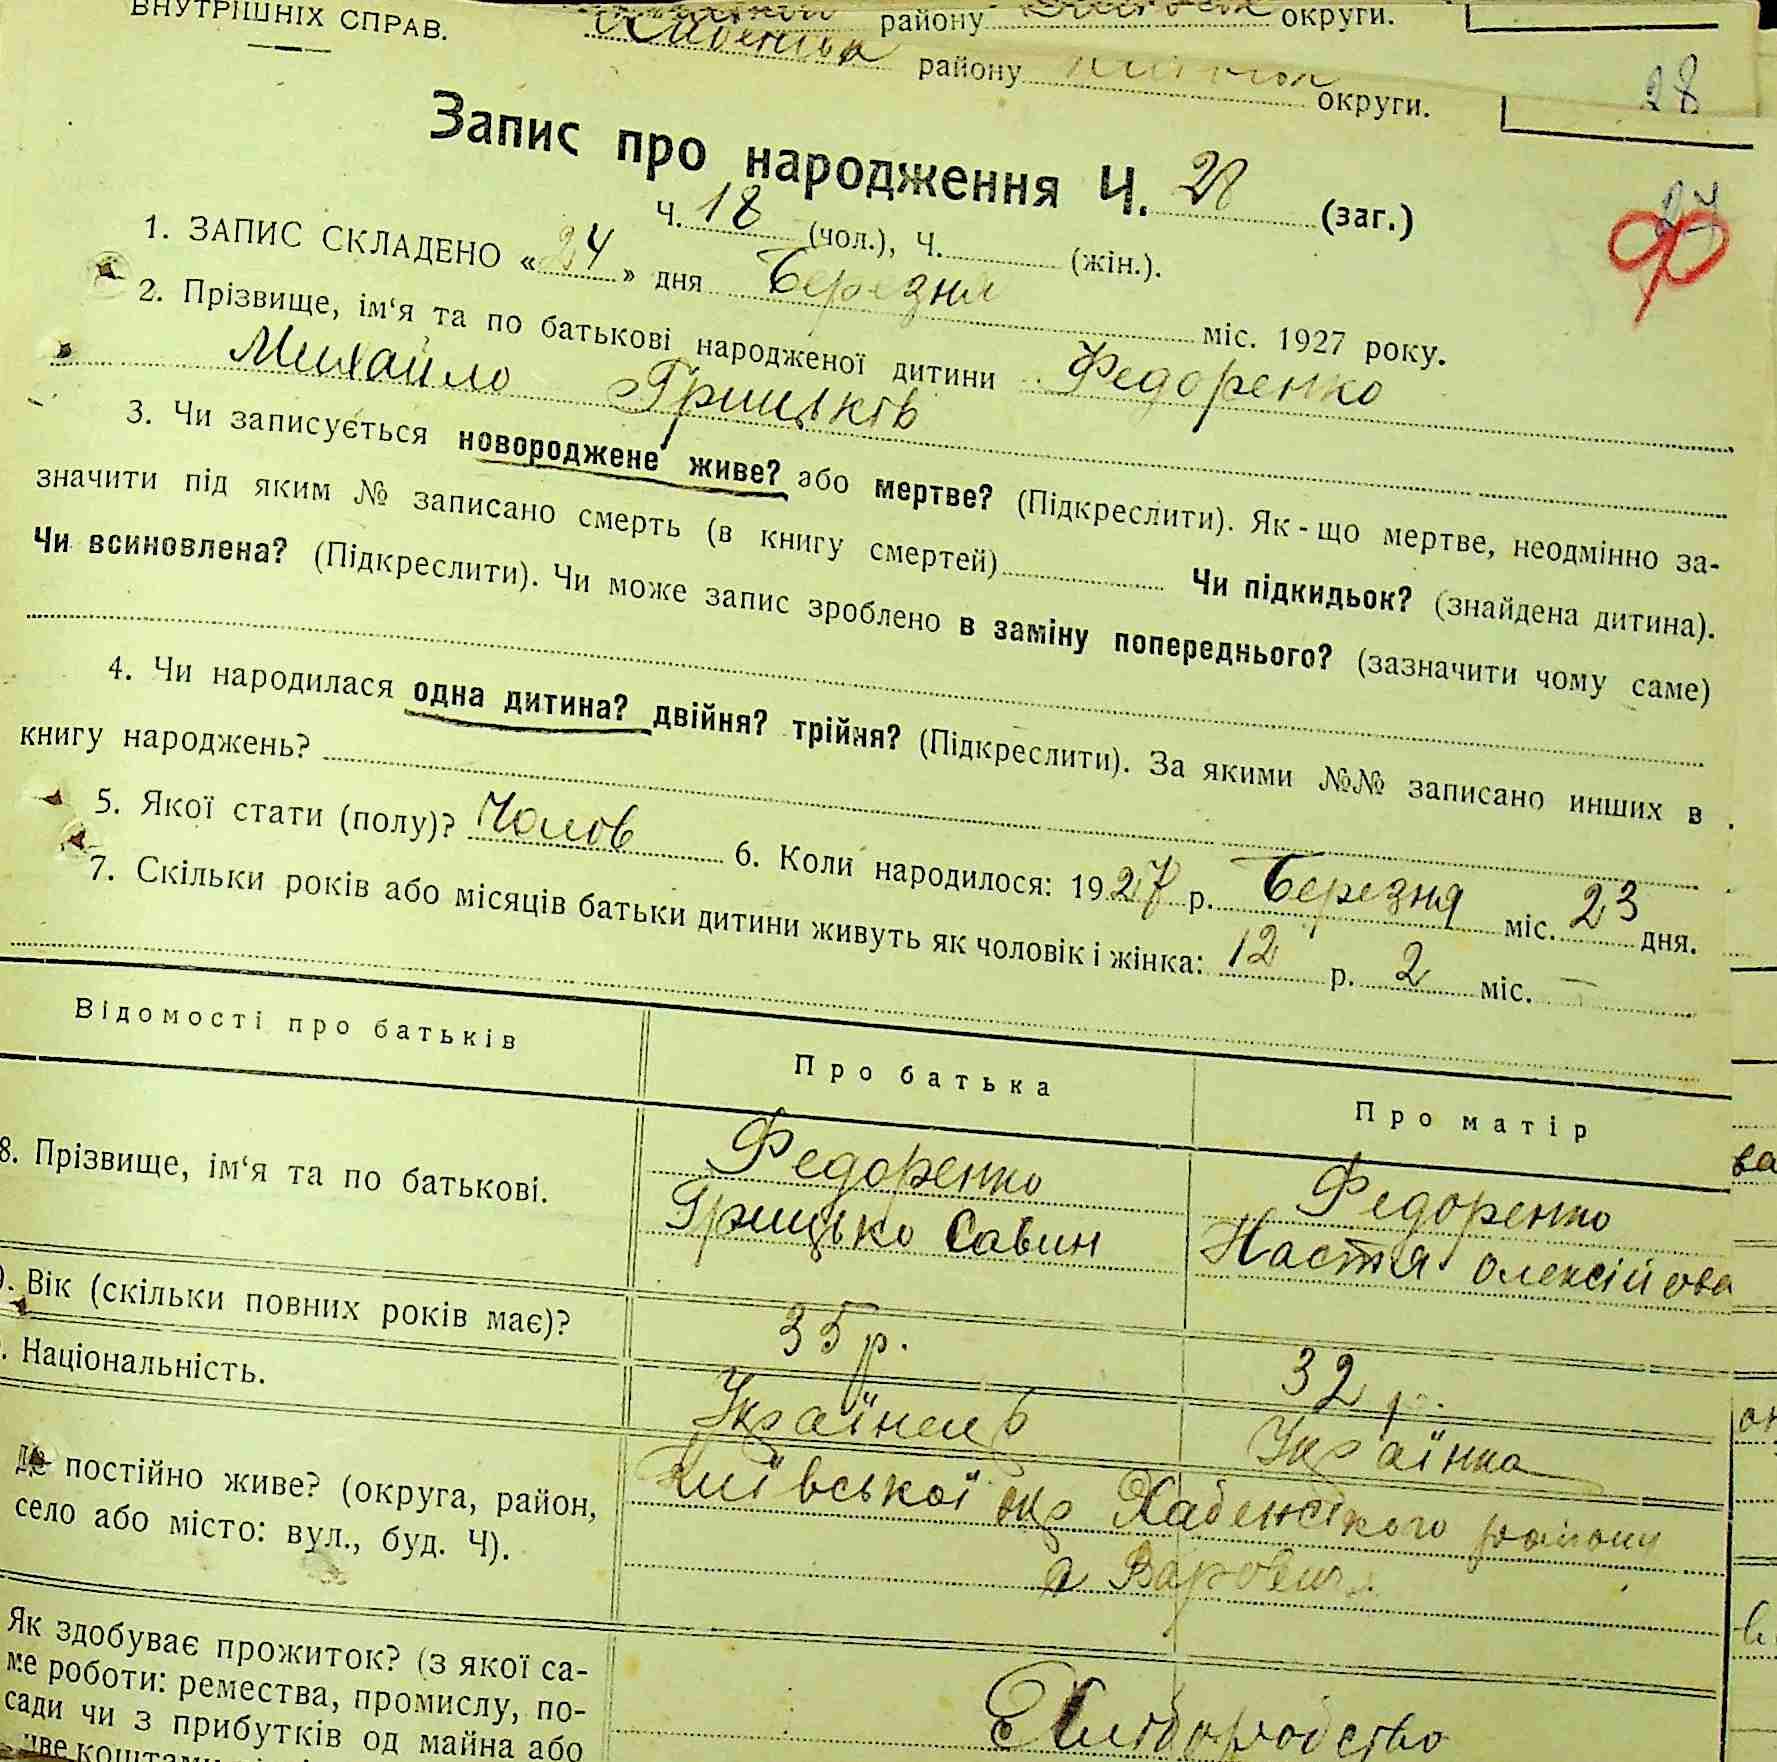 ВНУТРІШНІХ СПРАВ.
району округи.
району округи.
28
Запис про народження Ч. (заг.)
Ч. 18 (чол.), Ч. (жін.).
1. ЗАПИС СКЛАДЕНО «24» дня Березня міс. 1927 року.
2. Прізвище, ім‘я та по батькові народженої дитини Федоренко
Михайло Грицьків
3. Чи записується новороджене живе? або мертве? (Підкреслити). Як - що мертве, неодмінно за-
значити під яким № записано смерть (в книгу смертей) Чи підкидьок? (знайдена дитина).
Чи всиновлена? (Підкреслити). Чи може запис зроблено в заміну попереднього? (зазначити чому саме)
4. Чи народилася одна дитина? двійня? трійня? (Підкреслити). За якими №№ записано инших в
книгу народжень?
5. Якої стати (полу)? Чолов 6. Коли народилося: 1927 р. Березня міс. 23 дня.
7. Скільки років або місяців батьки дитини живуть як чоловік і жінка: 12 р. 2 міс.
Відомості про батьків Про батька Про матір
8. Прізвище, ім‘я та по батькові. Федоренко Федоренко
Грицько Савин Настя Олексійова
Вік (скільки повних років має)? 35 р. 32 р.
Національність. Українець Українка
де постійно живе? (округа, район, Київської окр Хабенського району
село або місто: вул., буд. Ч). с Варовичі
Як здобуває прожиток? (з якої са-
ме роботи: ремества, промислу, по- Хліборобство
сади чи з прибутків од майна або